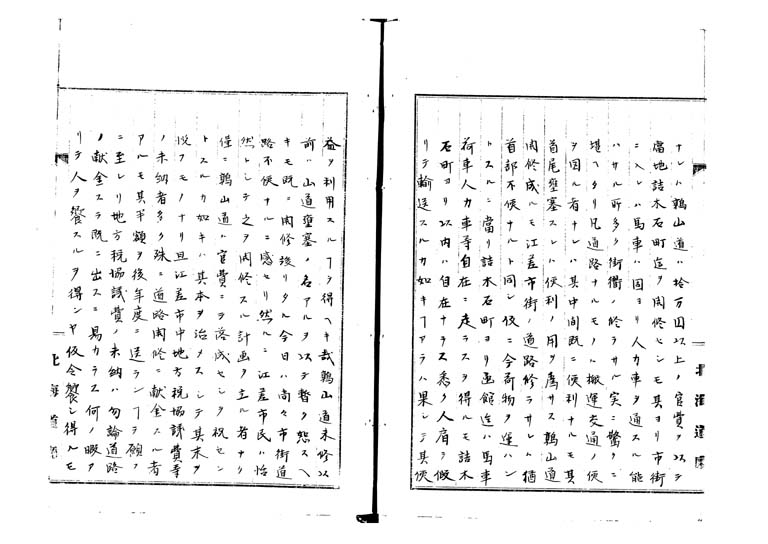 ナレハ鶉山道ハ拾万円以上ノ官費ヲ以テ
当地詰木石町迄ヲ開修セシモ其ヨリ市街
ニ入レハ馬車ハ固ヨリ人力車ヲ通スル能
ハサル所多ク街衢ノ修ラサル実ニ驚クニ
堪ヘタリ凡道路ナルモノハ搬運交通ノ便
ヲ図ル者ナレハ其中間既ニ便利ナルモ其
首尾壅塞スレハ便利ノ用ヲ為サス鶉山道
開修成ルモ江差市街ノ道路修ラサレハ猶
首部不便ナルト同シ仮ニ今荷物ヲ運ハン
トスルニ当リ詰木石町ヨリ函館迄ハ馬車
荷車人力車等自在ニ走ラスヲ得ルモ詰木
石町ヨリ以内ハ自在ナラス悉ク人肩ヲ仮
リテ輸送スルカ如キコアラハ果シテ其便
益ヲ利用スルコヲ得ヘキ哉鶉山道未修以
前ハ山道壅塞ノ名アルヲ以テ暫ク恕スヘ
キモ既ニ開修竣リタル今日ハ尚々市街道
路不便ナルニ感セリ然ルニ江差市民ハ怡
然トシテ之ヲ開修スル計画ヲ立ル者ナク
僅ニ鶉山道ハ官費ニテ落成セシヲ祝セン
トスルカ如キハ其本ヲ治メスシテ其末ヲ
ノ未納者多ク殊ニ道路開修ニ献金スル者
アルモ其半額ヲ後年度ニ送ランコヲ願フ
ニ至レリ地方税協議費ノ未納ハ勿論道路
ノ献金スラ既ニ出スニ易カラス何ノ暇ヲ
リテ人ヲ饗スルヲ得ンヤ仮令饗シ得ルモ
北海道庁